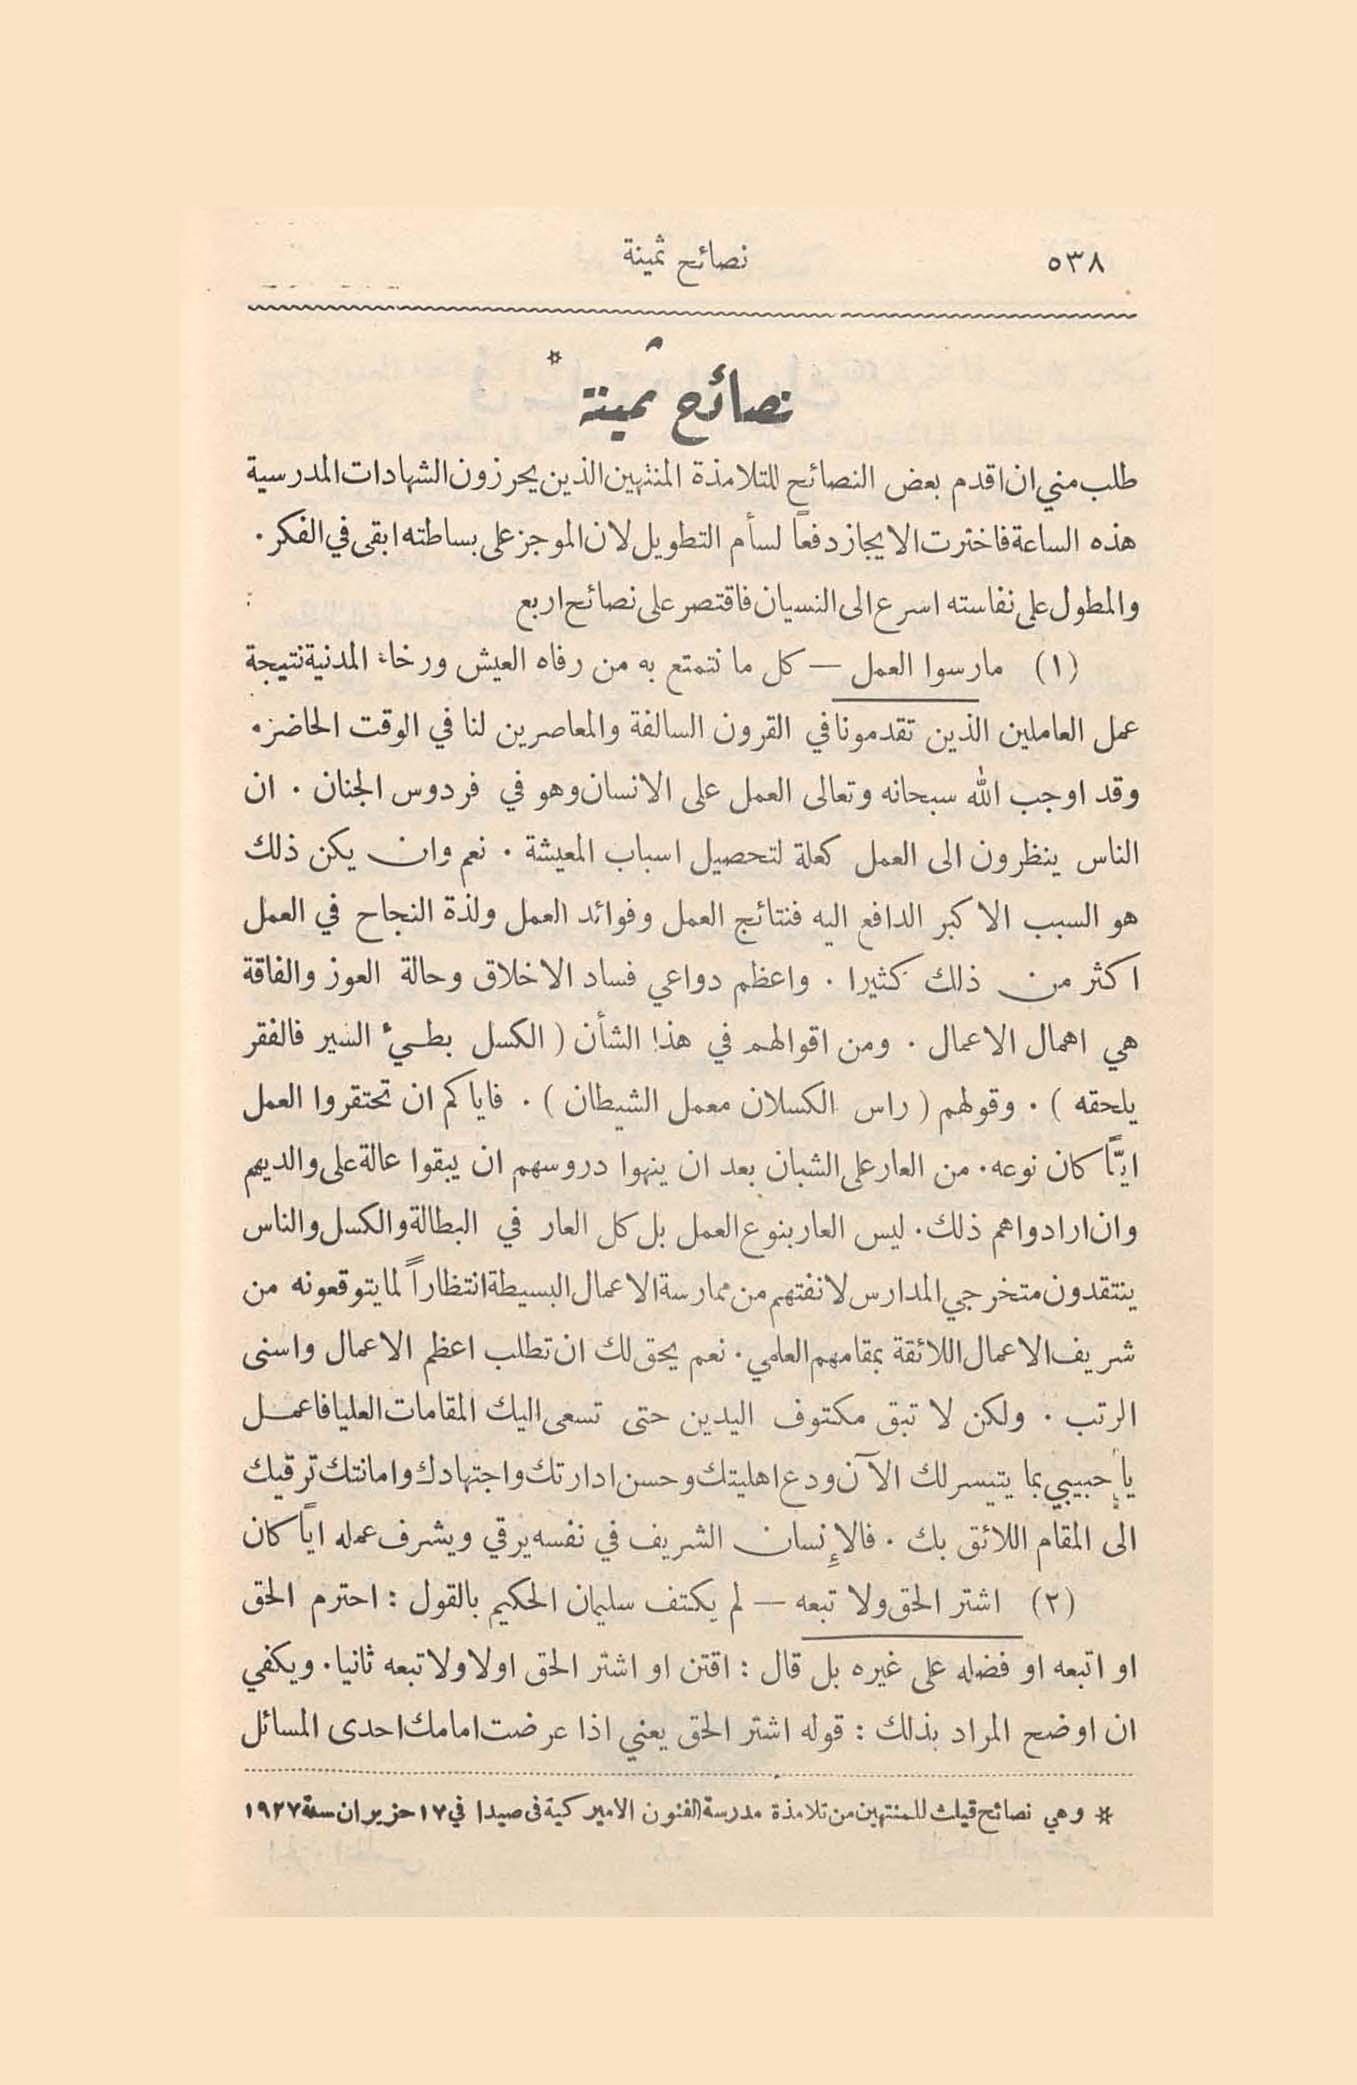 ٥٣٨ نصائح ثمينة
نصائح ثمينة *
طلب مني ان اقدم بعض النصائح للتلامذة المنتهين الذين يحرزون الشهادات المدرسية
هذه الساعة فاخترت الايجاز دفعاً لسأم التطويل لان الموجز على بساطته ابقى في الفكر .
والمطول على نفاسته اسرع الى النسيان فاقتصر على نصائح اربع
(١) مارسوا العمل — كل ما نتمتع به من رفاه العيش ورخاء المدنية نتيجة
عمل العاملين الذين تقدمونا في القرون السالفة والمعاصرين لنا في الوقت الحاضر .
وقد اوجب الله سبحانه وتعالى العمل على الانسان وهو في فردوس الجنان . ان
الناس ينظرون الى العمل كعلة لتحصيل اسباب المعيشة . نعم وان يكن ذلك
هو السبب الاكبر الدافع اليه فنتائج العمل وفوائد العمل ولذة النجاح في العمل
اكثر من ذلك كثيرا . واعظم دواعي فساد الاخلاق وحالة العوز والفاقة
هي اهمال الاعمال . ومن اقوالهم في هذا الشأن ( الكسل بطيء السير فالفقر
يلحقه ) . وقولهم ( راس الكسلان معمل الشيطان ) . فاياكم ان تحتقروا العمل
ايًّا كان نوعه . من العار على الشبان بعد ان ينهوا دروسهم ان يبقوا عالة على والديهم
وان ارادوا هم ذلك . ليس العار بنوع العمل بل كل العار في البطالة والكسل والناس
ينتقدون متخرجي المدارس لانفتهم من ممارسة الاعمال البسيطة انتظاراً لما يتوقعونه من
شريف الاعمال اللائقة بمقامهم العلمي . نعم يحق لك ان تطلب اعظم الاعمال واسنى
الرتب . ولكن لا تبق مكتوف اليدين حتى تسعى اليك المقامات العليا فاعمل
يا حبيبي بما يتيسر لك الآن ودع اهليتك وحسن ادارتك واجتهادك وامانتك ترقيك
الى المقام اللائق بك . فالإنسان الشريف في نفسه يرقي ويشرف عمله اياً كان
(٢) اشتر الحق ولا تبعه — لم يكتف سليمان الحكيم بالقول : احترم الحق
او اتبعه او فضله على غيره بل قال : اقتن او اشتر الحق اولا ولا تبعه ثانيا . ويكفي
ان اوضح المراد بذلك : قوله اشتر الحق يعني اذا عرضت امامك احدى المسائل
* وهي نصائح قيلت للمنتهين من تلامذة مدرسة الفنون الاميركية في صيدا في ١٧ حزيران سنة ١٩٢٧